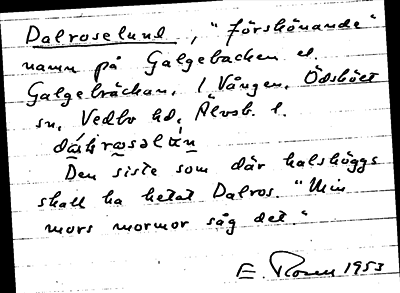 Dalroselund, "förskönande"
namn på Galgebacken el.
Galgebräckan, i Vången, Ödskölt
sn, Vedbo hd, Älvsb. l.
Den siste som där halshöggs
skall ha hetat Dalros. "Min
mors mormor såg det."
E. Rosen 1953